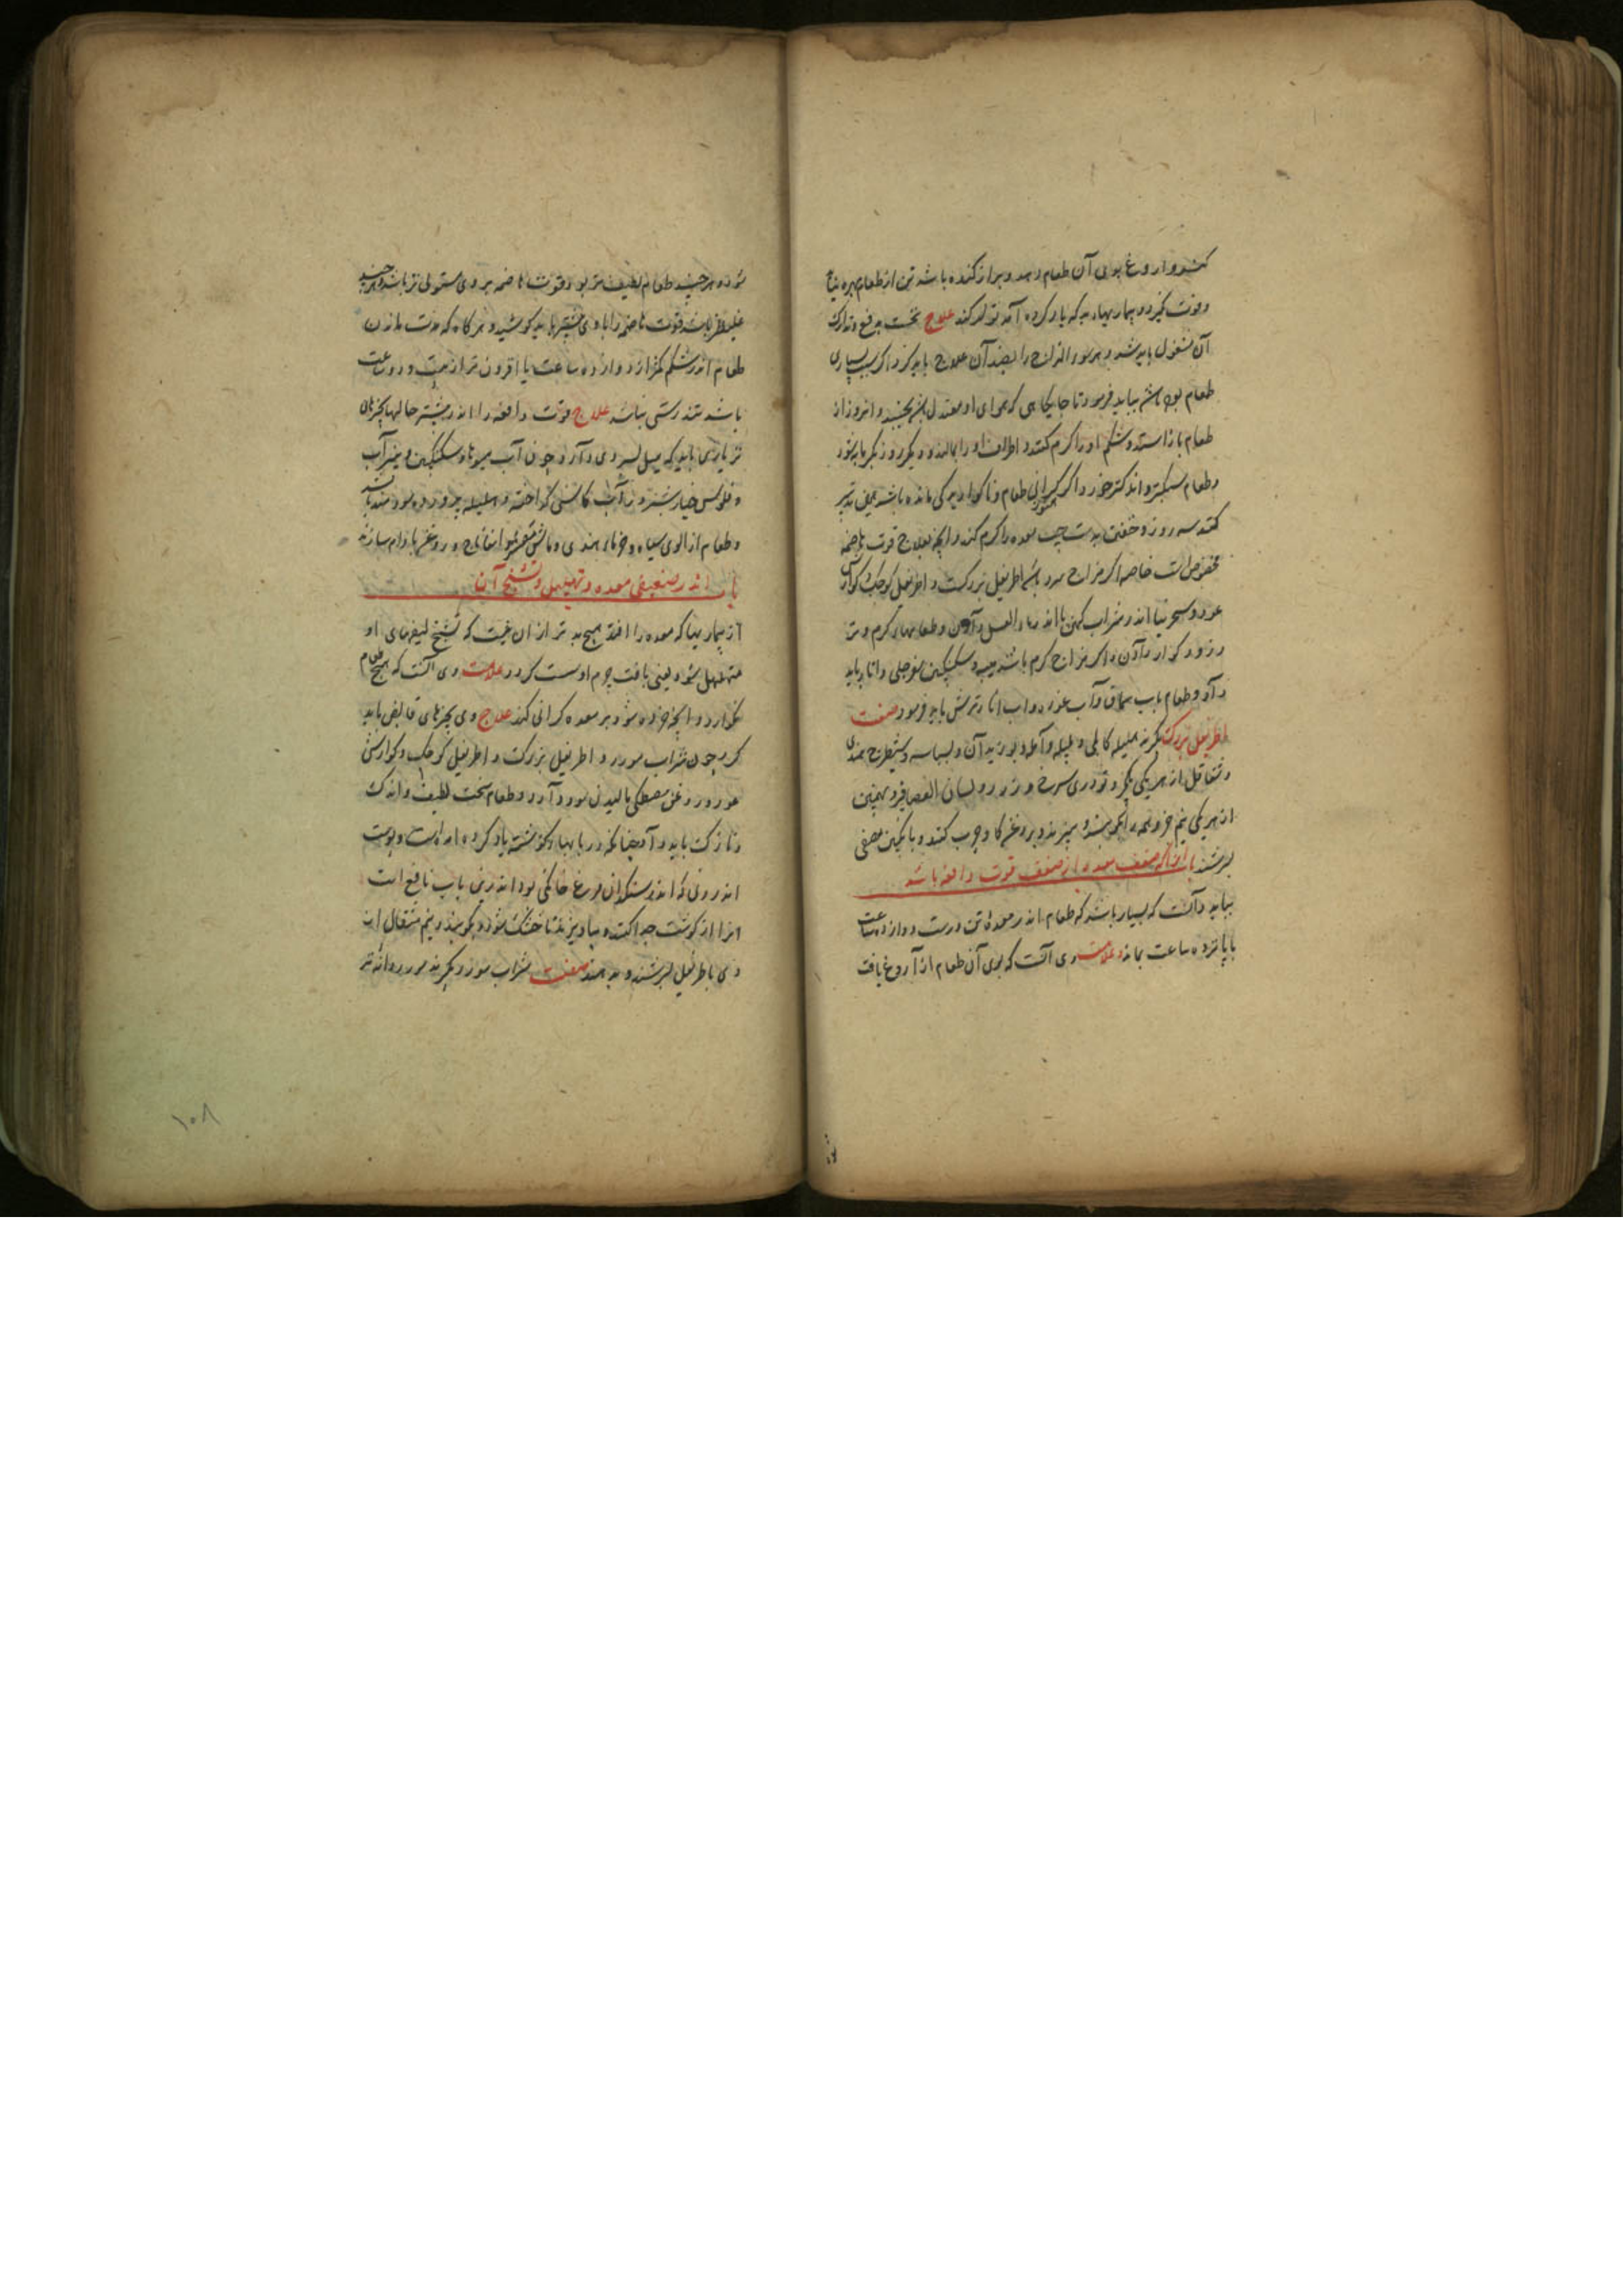 کند و آروغ بوی آن طعام دهد و براز کنده باشد تن از طعام بهره نیابد
و قوت نگیرد و بیماریهاء بد که یاد کرده آمد تولد کند علاج نخست بدفع و تدارک
آن مشغول باید شد و هر سوء المزاج را بضد آن علاج باید کرد و اگر سبب بسیاری
طعام بوده باشد بباید فرمود تا جایگاهی که هوای او معتدل باشد بخسبد و انروز از
طعام باز استد و شکم او را گرم کنند و اطراف او را بمالند و دیگر روز بگرمابه شود
و طعام سبکتر و اندکتر خورد و اگر هنوز گرانی طعام و ناگواریدگی مانده باشد همین تدبیر
کنند سه روز و خفتن بدست چپ معده را گرم کند و آنچه بعلاج قوت هاضمه
مخصوص است خاصه اگر مزاج سرد باشد اطریفل بزرگست و اطریفل کوچک و گوارش
عود و سجرنیا اندر شراب کهن یا اندر ماء العسل دادن و طعامهاء گرم و تر
و زود گوار دادن و اگر مزاج گرم باشد میبه و سکنگبین سفرجلی و انار باید
داد و طعام باب سماق و آب غوره و اب انار ترش باید فرمود صفت
اطریفل بزرگ بگیرند هلیله کابلی و بلیله و آمله و بوزیدان و بسباسه و شیطرج هندی
و شقاقل از هر یکی یکجزو تودری سرخ و زرد و لسان العصافیر و بهمنین
از هر یکی نیم جزو همه را بکوبند و ببیزند و بروغن گاو چرب کنند و بانگبین مصفی
بسرشند باب اندر آنکه ضعف معده از ضعف قوت دافعه باشد
بباید دانست که بسیار باشد که طعام اندر معدهٔ تن درست دوازده ساعت
یا پانزده ساعت بماند و علامت وی آنست که بوی آن طعام از آروغ یافت
شود و هر چند طعام لطیف تر بود قوت هاضمه بر وی مستولی تر باشد و هر چند
غلیظتر باشد قوت هاضمه را با وی بیشتر باید کوشید و هر گاه که مدت ماندن
طعام اندر شکم کمتر از دوازده ساعت یا افزون تر از بیست و دو ساعت
باشد تندرستی نباشد علاج قوت دافعه را اندر بیشتر حالها بچیزهای
تر یاری باید که میل فرود وی دآرد چون آب میوها و سکنگبین و پنیر آب
و فلوس خیار شنبر در آب کاسنی گداخته و هلیله پرورده سودمند باشد
و طعام از الوی سیاه و خرمای هندی و ماش مقشر با اسفاناج و روغن بادام سازند
باب اندر ضعیفی معده و تهلهل و تشنج آن
از بیماریها که معده را افتد هیچ بد تر از ان نیست که تشنج لیفهای او
متهلهل شود یعنی بافت جرم او سست گردد علامت وی آنست که هیچ طعام
نگوارد و انچه خورده شود بر معده گرانی کند علاج وی بچیزهای قابض باید
کرد چون شراب مورد و اطریفل بزرگ و اطریفل کوچک و گوارش
عود و روغن مصطکی مالیدن سود دآرد و طعام سخت لطیف و اندک
و نازک باید داد چنانکه در بابهاء گذشته یاد کرده امده است و پوست
اندرونی که اندر سنگدان مرغ خانگی بود اندرین باب نافع است
انرا از گوشت جدا کنند و بیاویزند تا خشک شود و بکوبند و نیم مثقال از
وی با طریفل بسرشند و بدهند صفت شراب مورد بگیرند مورد دانه تر
۱۰۸